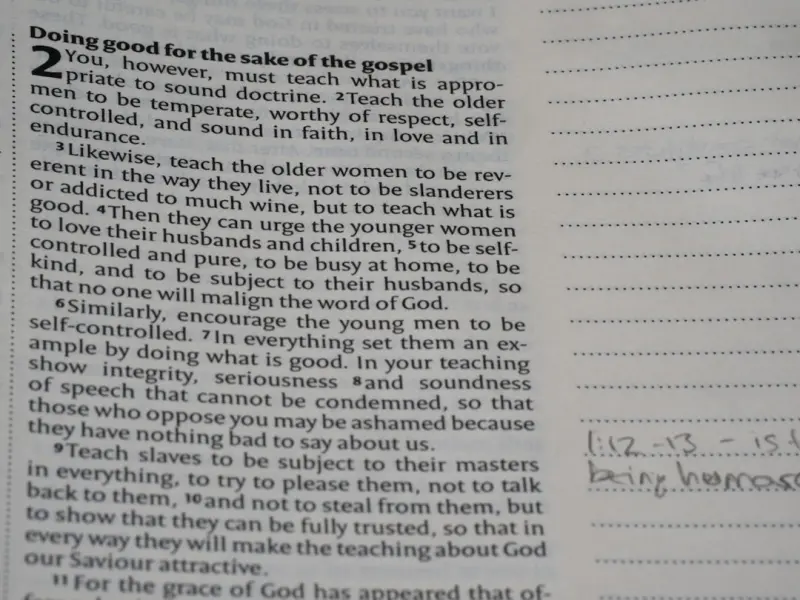 Doing good for the sake of the gospel
2 You, however, must teach what is appro-
priate to sound doctrine. 2Teach the older
men to be temperate, worthy of respect, self-
controlled, and sound in faith, in love and in
endurance.
3Likewise, teach the older women to be rev-
erent in the way they live, not to be slanderers
or addicted to much wine, but to teach what is
good. 4Then they can urge the younger women
to love their husbands and children, 5to be self-
controlled and pure, to be busy at home, to be
kind, and to be subject to their husbands, so
that no one will malign the word of God.
6Similarly, encourage the young men to be
self-controlled. 7In everything set them an ex-
ample by doing what is good. In your teaching
show integrity, seriousness 8and soundness
of speech that cannot be condemned, so that
those who oppose you may be ashamed because
they have nothing bad to say about us.
9Teach slaves to be subject to their masters
in everything, to try to please them, not to talk
back to them, 10and not to steal from them, but
to show that they can be fully trusted, so that in
every way they will make the teaching about God
our Saviour attractive.
11For the grace of God has appeared that of-
1:12-13 - is
being